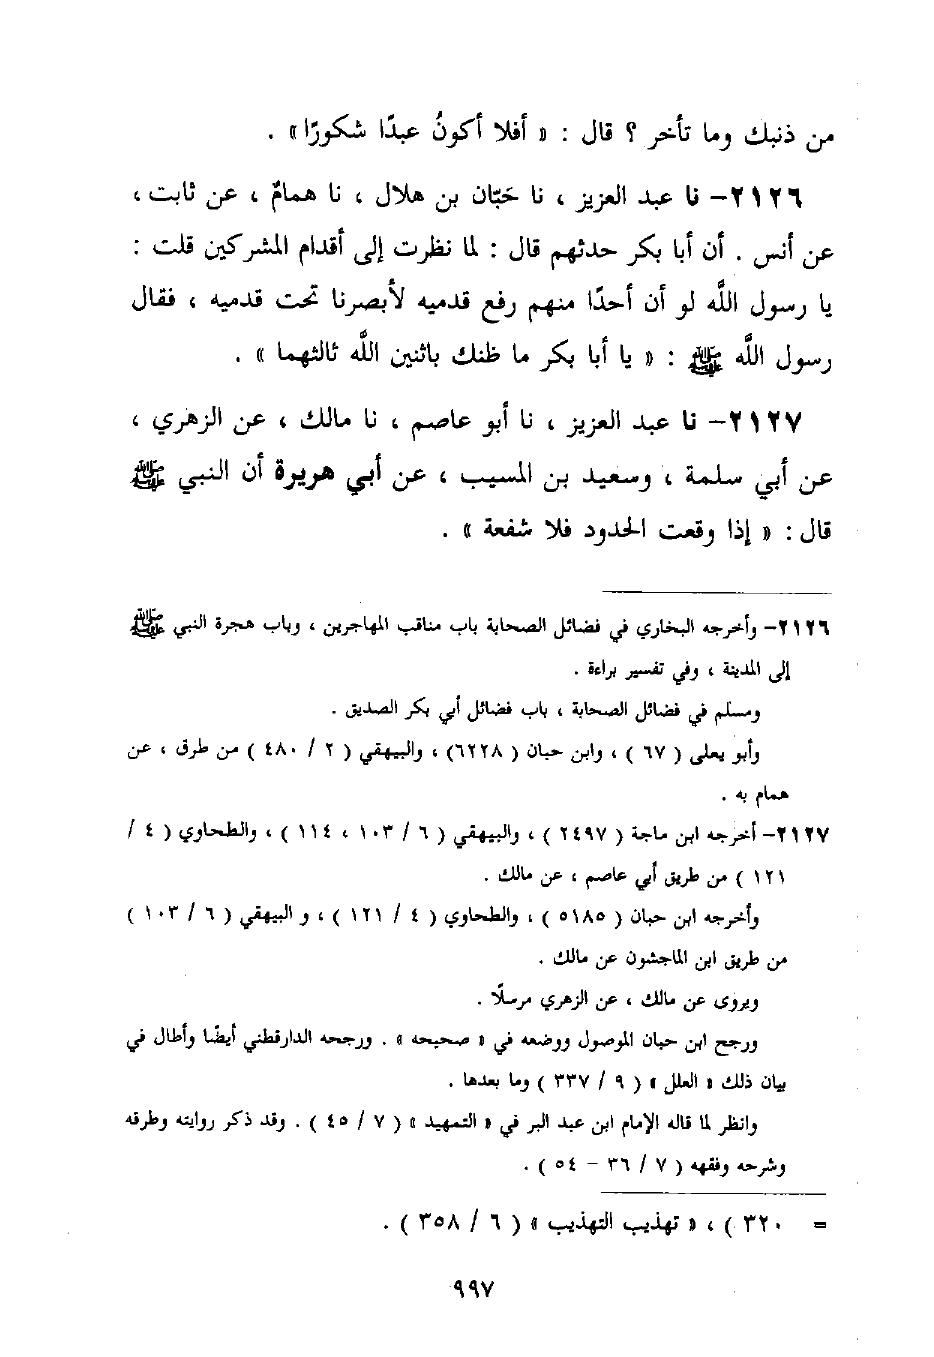 من ذنبك وما تأخر ؟ قال : « أفلا أكونُ عبدًا شكورًا» .
٢١٢٦– نا عبد العزيز ، نا حَبّان بن هلال ، نا همامٌ ، عن ثابت ،
عن أنس . أن أبا بكر حدثهم قال : لما نظرت إلى أقدام المشركين قلت :
يا رسول اللَّه لو أن أحدًا منهم رفع قدميه لأبصرنا تحت قدميه ، فقال
رسول اللَّه ﷺ : « يا أبا بكر ما ظنك باثنين اللَّه ثالثهما » .
٢١٢٧– نا عبد العزيز ، نا أبو عاصم ، نا مالك ، عن الزهري ،
عن أبي سلمة ، وسعيد بن المسيب ، عن أبي هريرة أن النبي ﷺ
قال : « إذا وقعت الحدود فلا شفعة » .
٢١٢٦– وأخرجه البخاري في فضائل الصحابة باب مناقب المهاجرين ، وباب هجرة النبي ﷺ
إلى المدينة ، وفي تفسير براءة .
ومسلم في فضائل الصحابة ، باب فضائل أبي بكر الصديق .
وأبو يعلى ( ٦٧ ) ، وابن حبان ( ٦٢٢٨) ، والبيهقي ( ٢ / ٤٨٠ ) من طرق ، عن
همام به .
٢١٢٧– أخرجه ابن ماجة ( ٢٤٩٧ ) ، والبيهقي ( ٦ / ١٠٣ ، ١١٤ ) ، والطحاوي ( ٤ /
١٢١ ) من طريق أبي عاصم ، عن مالك .
وأخرجه ابن حبان ( ٥١٨٥ ) ، والطحاوي ( ٤ / ١٢١ ) ، و البيهقي ( ٦ / ١٠٣ )
من طريق ابن الماجشون عن مالك .
ويروى عن مالك ، عن الزهري مرسلًا .
ورجح ابن حبان الموصول ووضعه في « صحيحه » . ورجحه الدارقطني أيضًا وأطال في
بيان ذلك « العلل » ( ٩ / ٣٣٧ ) وما بعدها .
وانظر لما قاله الإمام ابن عبد البر في « التمهيد » ( ٧ / ٤٥ ) . وقد ذكر روايته وطرقه
وشرحه وفقهه ( ٧ / ٣٦ – ٥٤ ) .
= ٣٢٠ ) ، « تهذيب التهذيب » ( ٦ / ٣٥٨ ) .
٩٩٧